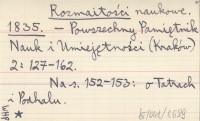 Rozmaitości naukowe.
1835. – Powszechny Pamiętnik
Nauk i Umiejętności (Kraków)
2: 127-162.
Na s. 152-153: o Tatrach
i Podhalu.
WHP